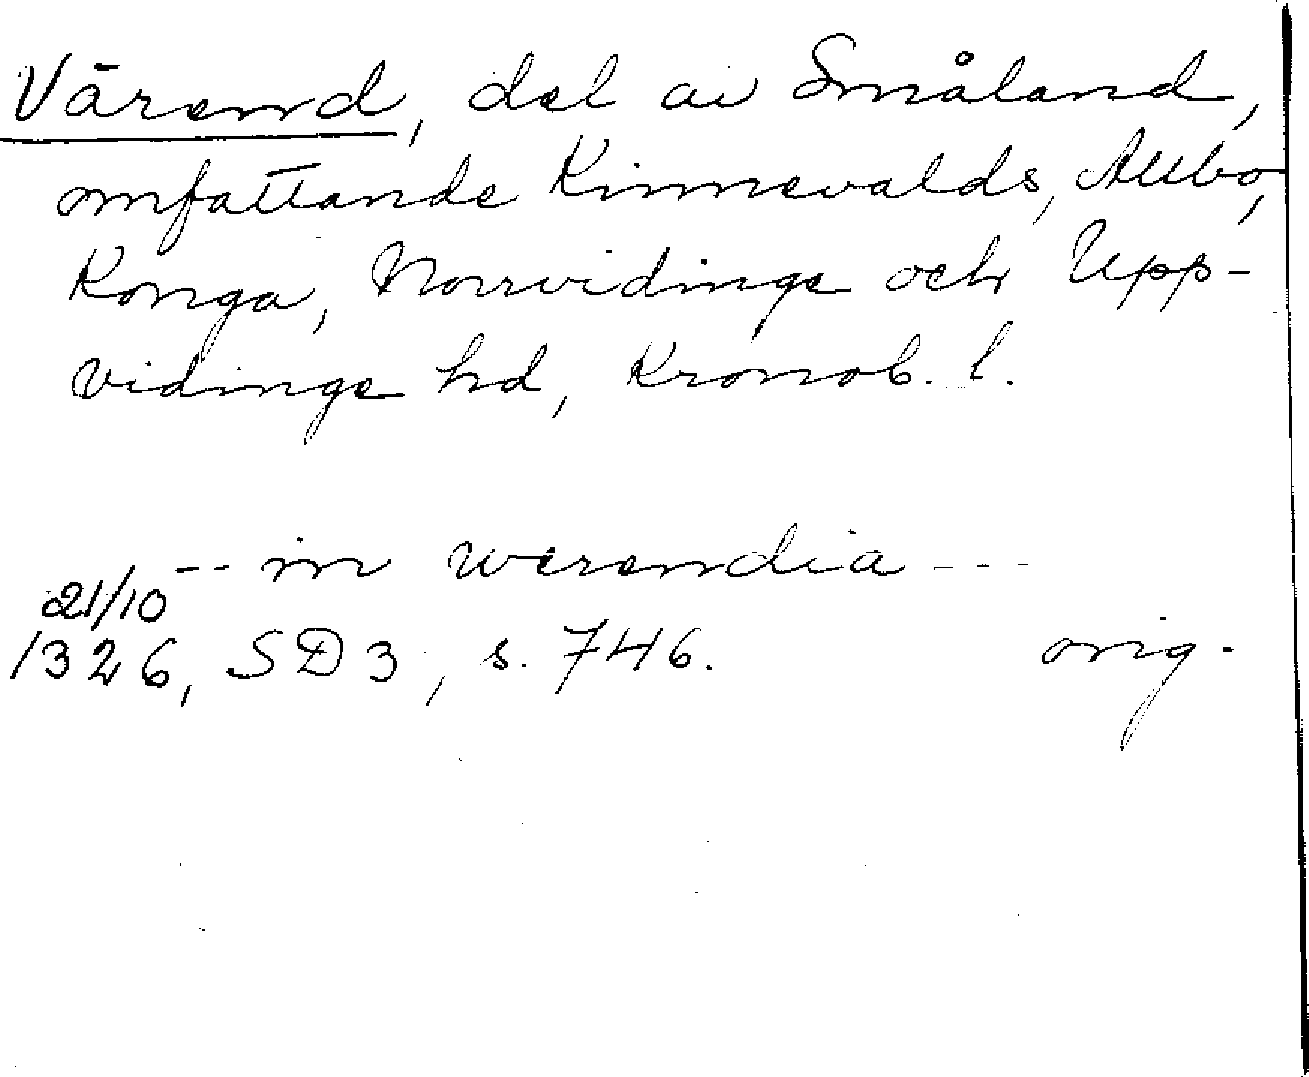 Värend, del av Småland,
omfattande Kinnevalds, Allbo,
Konga, Norrvidinge och Upp-
vidinge hd, Kronob. l.
-- in werendia ---
21/10
1326, SD3, s. 746. orig.